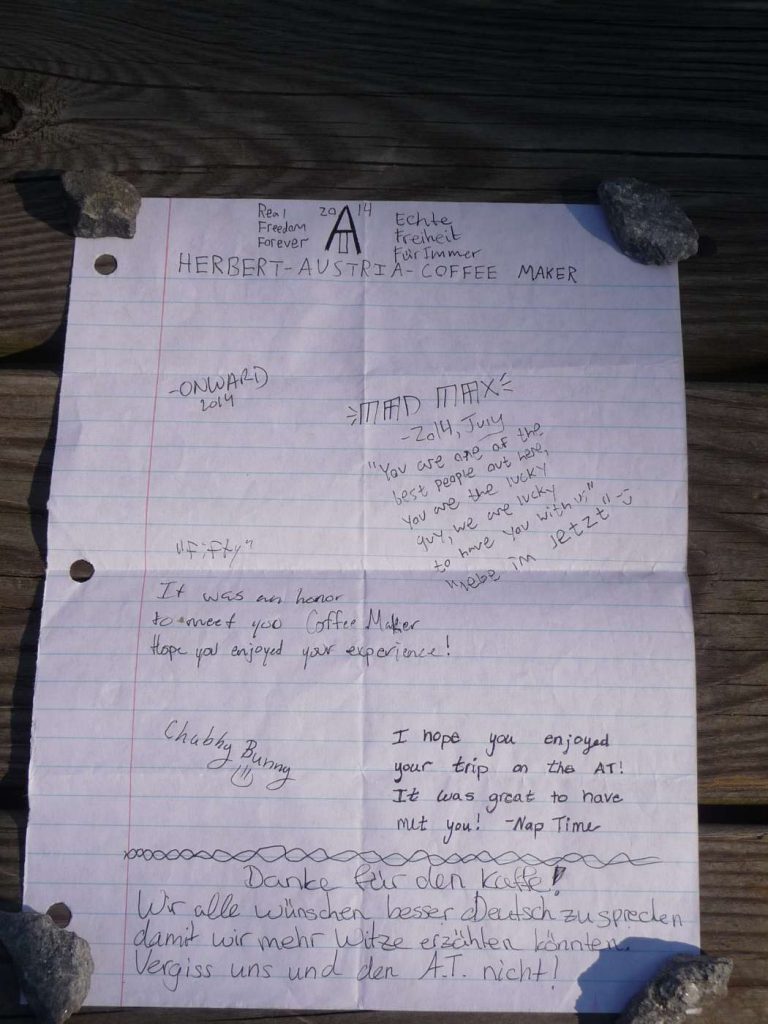 Real
Freedom
Forever
20 AT 14
Echte
Freiheit
Für Immer
HERBERT-AUSTRIA-COFFEE MAKER
-ONWARD
2014
MAD MAX
-2014, July
"You are one of the
best people out here,
You are the lucky
guy, we are lucky
to have you with us"
im Jetzt"
"Fifty"
It was an honor
to meet you Coffee Maker
Hope you enjoyed your experience!
Chabby Bunny
I hope you enjoyed
your trip on the AT!
It was great to have
met you! -Nap Time
Danke für den Kaffe!
Wir alle wünschen besser Deutsch zu sprecken
damit wir mehr Witze erzählen könnten.
Vergiss uns und den A.T. nicht!